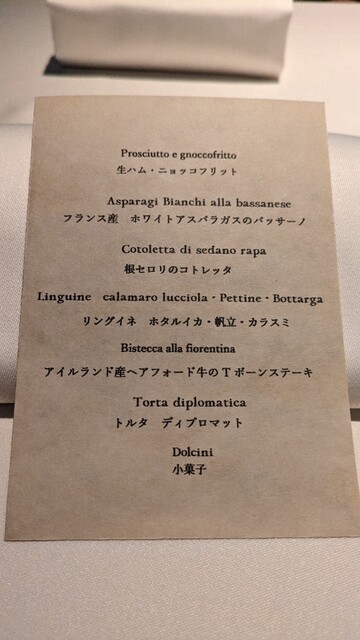 Prosciutto e gnoccofritto
生ハム・ニョッコフリット
Asparagi Bianchi alla bassanese
フランス産　ホワイトアスパラガスのバッサーノ
Cotoletta di sedano rapa
根セロリのコトレッタ
Linguine　calamaro lucciola・Pettine・Bottarga
リングイネ　ホタルイカ・帆立・カラスミ
Bistecca alla fiorentina
アイルランド産ヘアフォード牛のTボーンステーキ
Torta diplomatica
トルタ　ディプロマット
Dolcini
小菓子